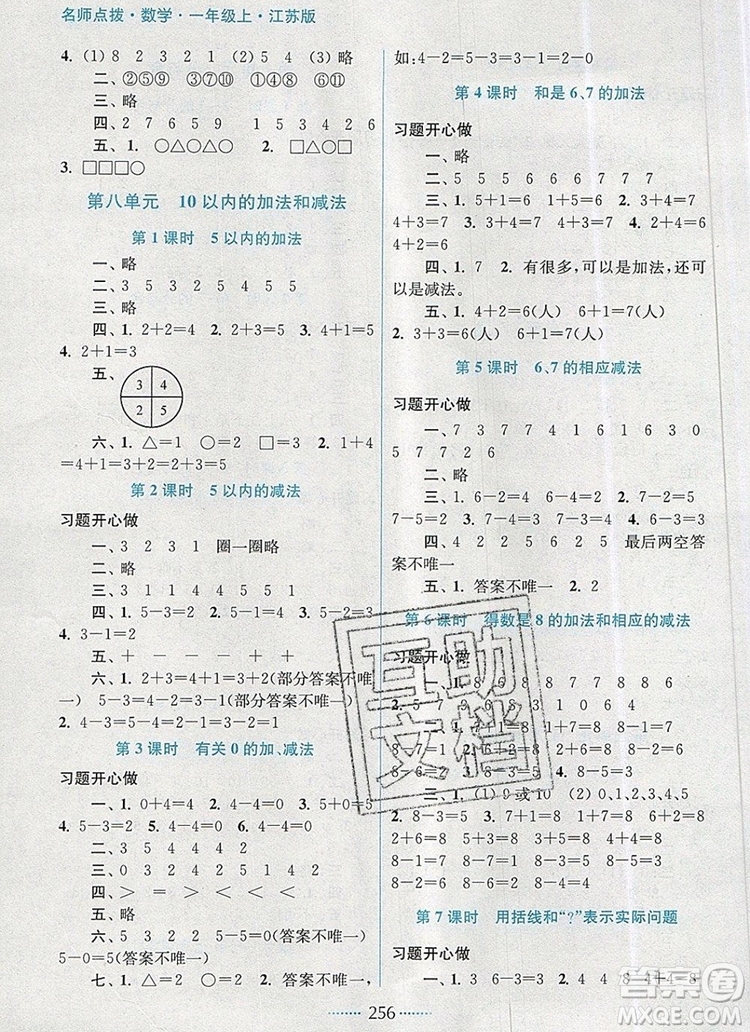 名师点拨·数学·一年级上·江苏版
4. (1) 8 2 9 1 8 (2) 5 4 (3) 略
二、②⑤⑨ ③⑦⑩ ①④⑧ ⑥⑪
三、略
四、2 7 6 5 9 6 1 5 3 4 2 6
五、1. ○△○△○ 2. △□△□△□
3. □□□○
第八单元 10 以内的加法和减法
第 1 课时 5 以内的加法
一、略
二、3 5 3 2 5 4 5 5
三、略
四、1. 2+2=4 2. 2+3=5 3. 4+1=5
4. 2+1=3
五、
3 4
2 5
六、1. △=1 ○=2 □=3 2. 1+4
=4+1=2+3=3+2=5
第 2 课时 5 以内的减法
习题开心做
一、3 2 3 1 圈一圈略
二、略
三、3 1 1 1 4 4 5 5 1
四、1. 5-3=2 2. 5-1=4 3. 2-1=1
4. 3-1=2
五、+ - - + - +
六、1. 2+3=5 1+2=3(部分答案不唯
一) 5-3=2 3-1=2(部分答案不唯一)
2. 4-1=5-2 4-2=5-3 4-3=5-4
第 3 课时 有关 0 的加、减法
习题开心做
一、1. 0+4=4 2. 4-4=0 3. 5+0=5
4. 5-3=2 5. 4-0=4 6. 4-4=0
二、略
三、0 3 2 4 2 5 1 3 4 2
四、> = > < < <
五、略
六、5 3 2 2 5-5=0(答案不唯一)
5-0=5(答案不唯一)
七、1. △=2 ○=0 2. (答案不唯一)
如:4-2=5-3 4-1=5-2 4-0=5-1
第 4 课时 和是 6、7 的加法
习题开心做
一、略
二、5 5 5 6 6 6 7 7 7
三、1. 5+1=6 1+5=6 2. 3+4=7
4+3=7 3. 5+2=7 2+5=7 4. 2+4=6
4+2=6
四、1. 7 2. 有很多,可以是加法,还可
以是减法。
五、1. 4+2=6(人) 6+1=7(人)
2. 3+3=6(人) 6+1=7(人)
第 5 课时 6、7 的相应减法
习题开心做
一、7 3 7 7 4 1 6 1 6 3 0
5 7 7 2 6
二、略
三、1. 6-2=4 6-4=2 2. 7-2=5
7-5=2 3. 7-4=3 7-3=4 4. 6-3=3
四、4 2 2 5 6 2 5 最后两空答
案不唯一
五、1. 答案不唯一 2. 2
第 6 课时 得数是 8 的加法和相应的减法
习题开心做
8-7=1 2. 8-4=4
8-6=2 8-2=6 3. 8-5=3 8-3=5
三、1. (1) 9 或 10 (2) 0、1、2、3、4
2. 0+8=8 7+1=8 1+7=8 6+2=8
2+6=8 5+3=8 3+5=8 4+4=8
8-1=7 8-7=1 8-2=6 8-6=2
8-4=4 8-3=5 8-5=3
第 7 课时 用括线和“?”表示实际问题
习题开心做
256
互助文档
答案圈
MXQE.COM